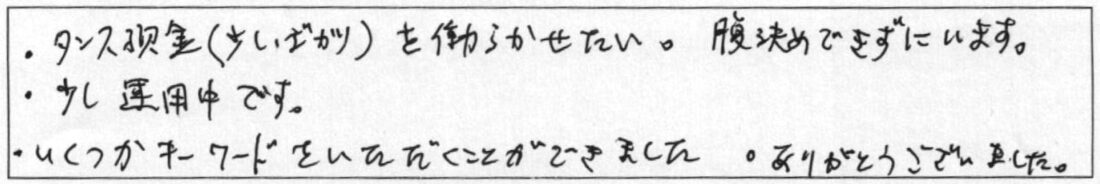 ・タンス預金(少しづつ)を働らかせたい。腹決めできずにいます。
・少し運用中です。
・いくつかキーワードをいただくことができました。ありがとうございました。